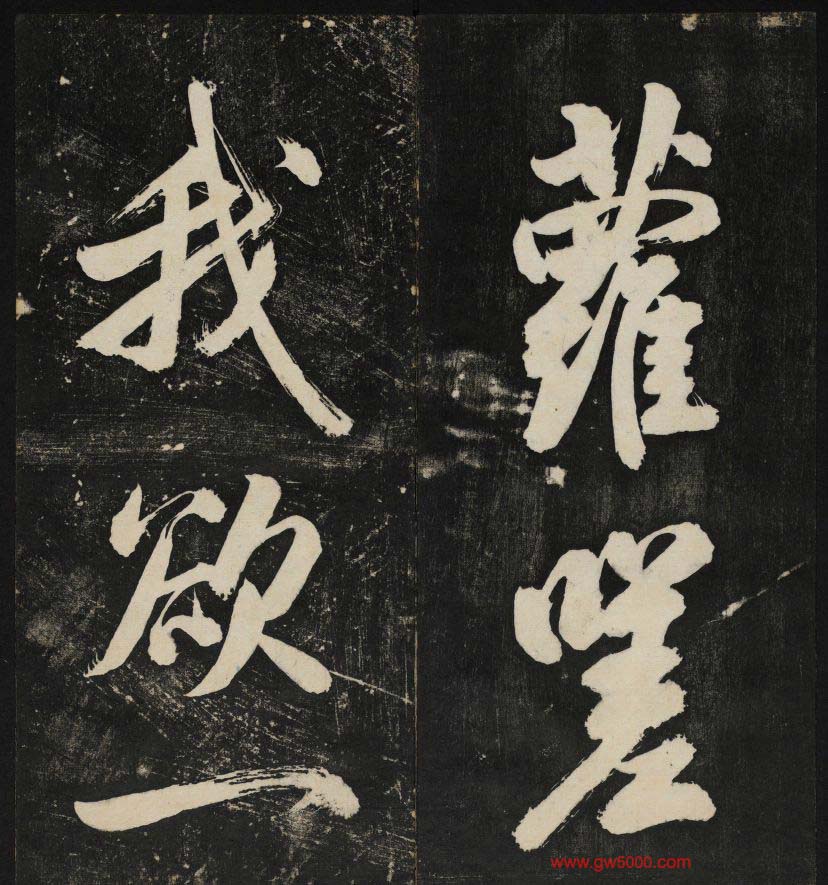 蘿嗟
我欲一
www.gw5000.com